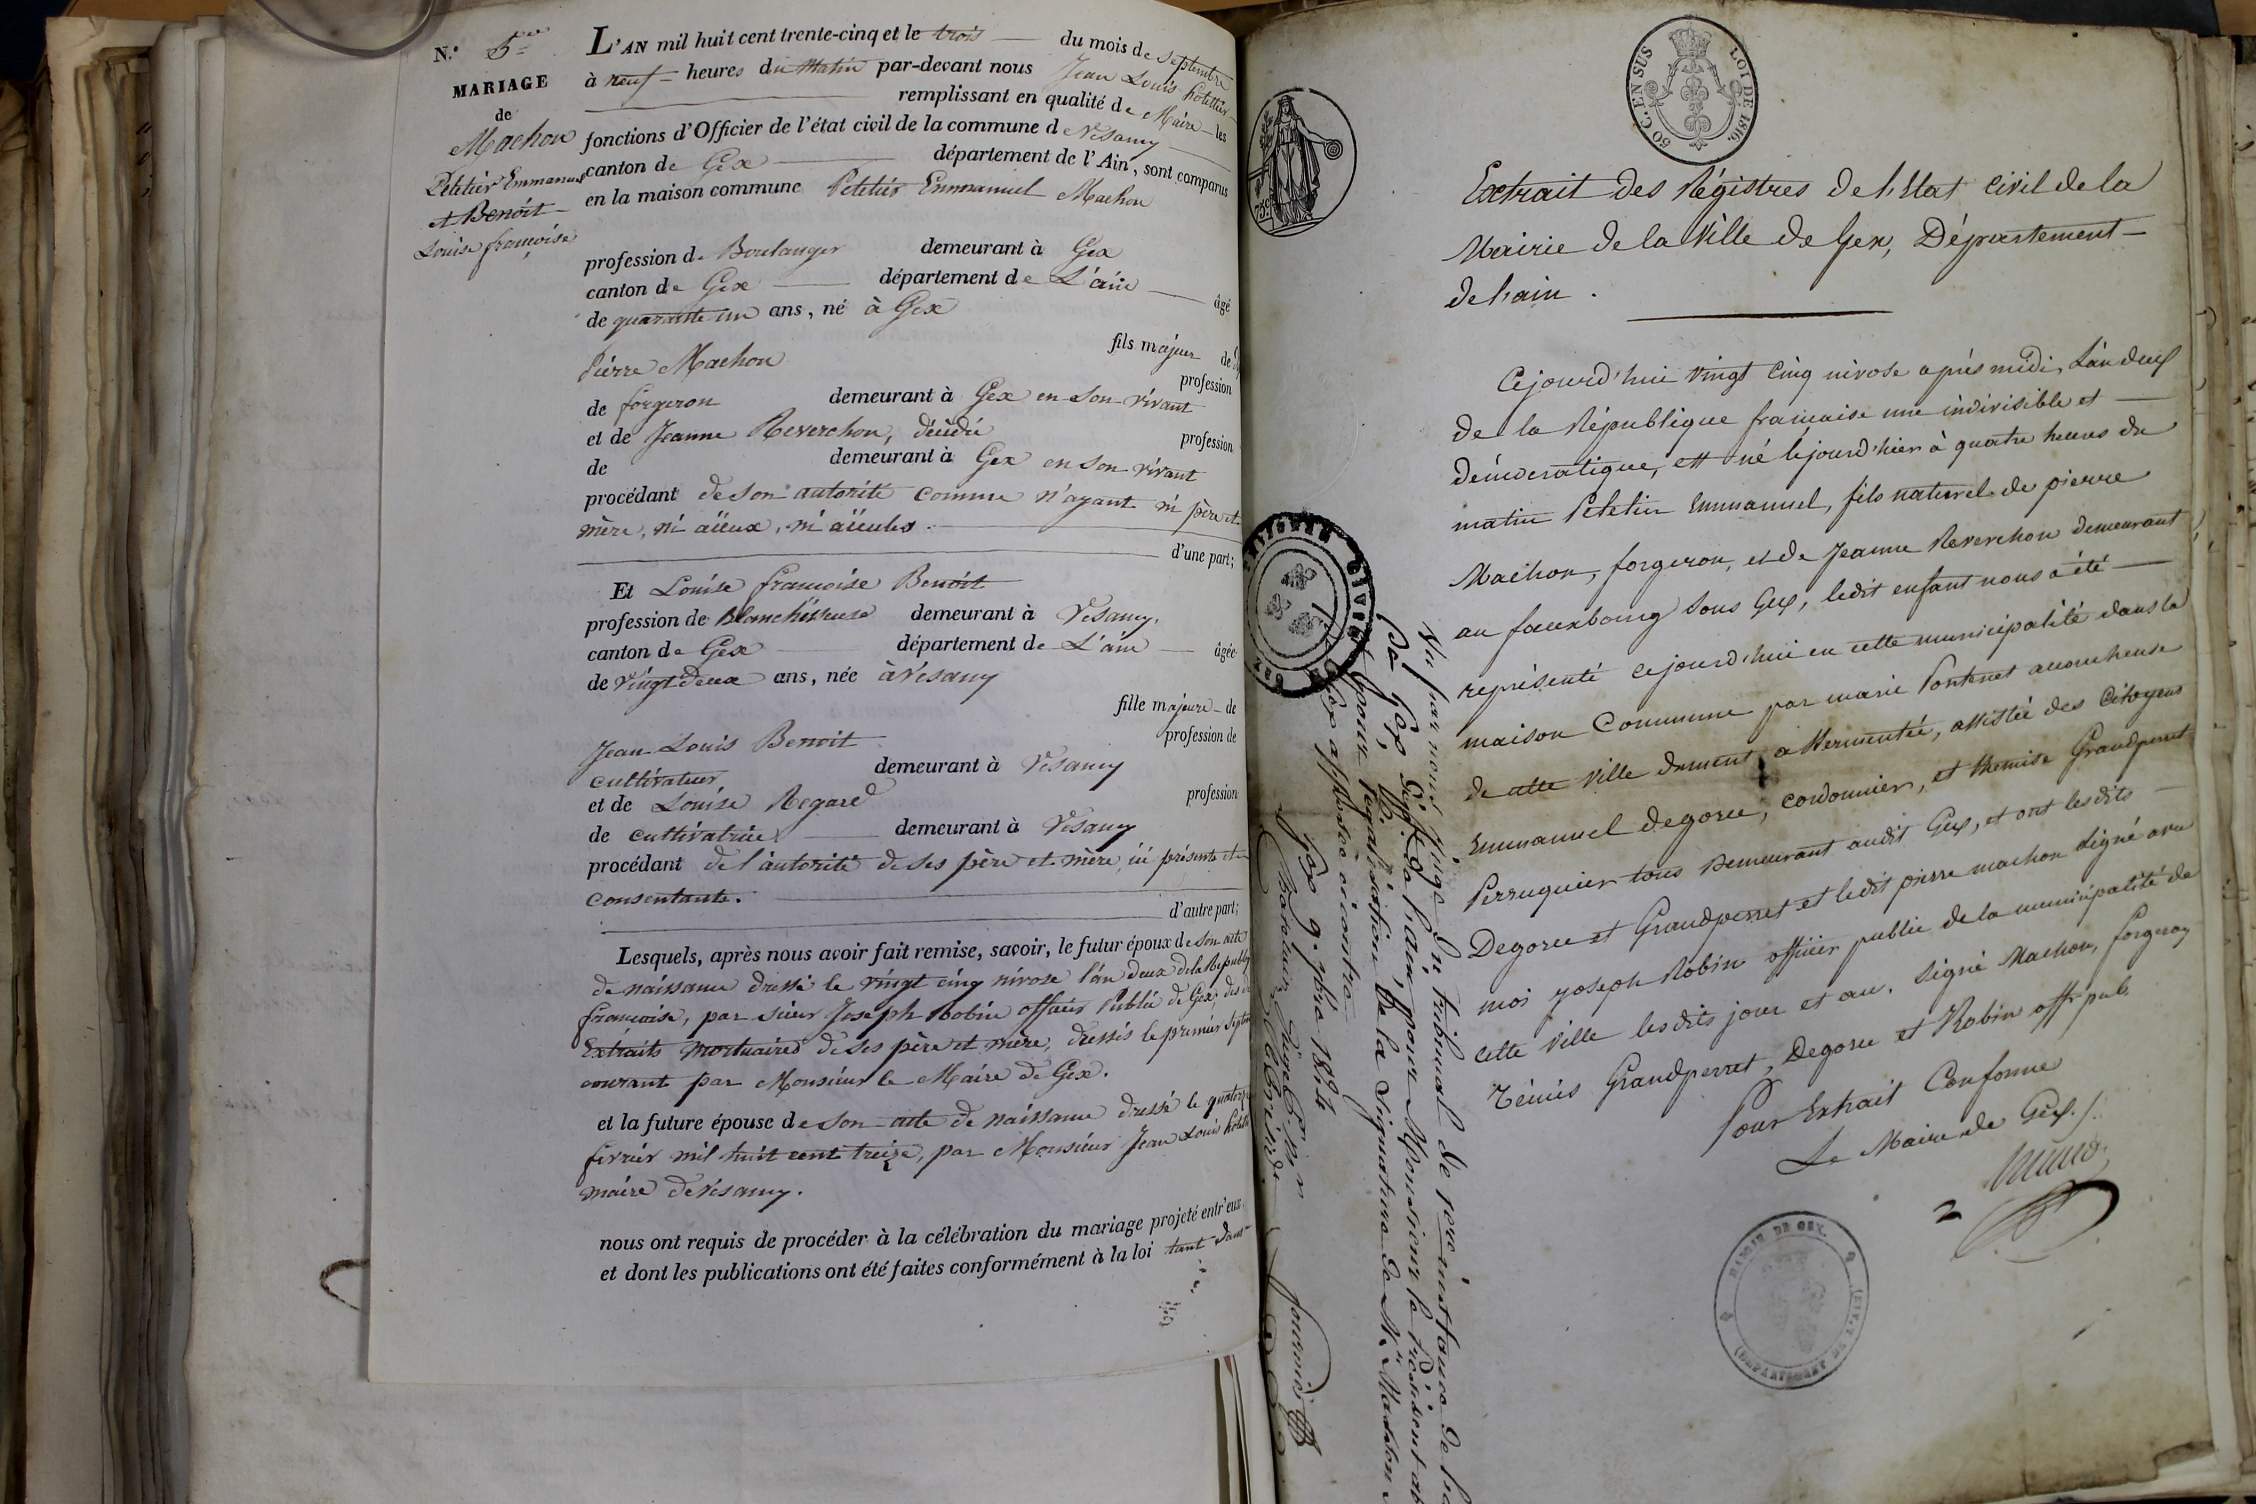 N.° 5
MARIAGE
de
Machon
Petitier Emmanuel
et Benoit
Louise françoise
L'AN mil huit cent trente-cinq et le trois du mois de Septembre
à neuf heures du Matin par-devant nous Jean Louis
remplissant en qualité de Maire les
fonctions d'Officier de l'état civil de la commune de Vésancy
canton de Gex département de l'Ain, sont comparus
en la maison commune Petitier Emmanuel Machon
profession de Boulanger demeurant à Gex
canton de Gex département de L'ain âgé
de quarante un ans, né à Gex
fils majeur de
Pierre Machon profession
de forgeron demeurant à Gex en son vivant
et de Jeanne Reverchon, décédée profession
de demeurant à Gex en son vivant
procédant de son autorité comme n'ayant ni père et
mère, ni aïeux, ni aïeules.
d'une part;
Et Louise françoise Benoit
profession de Blanchisseuse demeurant à Vésancy.
canton de Gex département de L'ain âgée
de vingt deux ans, née à Vésancy
fille majeure de
Jean Louis Benoit profession de
cultivateur demeurant à Vésancy
et de Louise Regard profession
de cultivatrice demeurant à Vésancy
procédant de l'autorité de ses père et mère, ici présents et
consentants.
d'autre part;
Lesquels, après nous avoir fait remise, savoir, le futur époux de son acte
de naissance dressé le vingt cinq nivose l'an deux de la Republiq
francoise, par sieur Joseph Robin officier Public de Gex, des
Extraits mortuaires de ses père et mère, dressés le premier Septem
courant par Monsieur le Maire de Gex.
et la future épouse de son acte de naissance dressé le quatorze
fevrier mil huit cent treize, par Monsieur Jean Louis
maire de Vésancy.
nous ont requis de procéder à la célébration du mariage projeté entr'eux
et dont les publications ont été faites conformément à la loi tant dans
75.c
50 C. EN SUS
LOI DE 1816.
Extrait des Régistres de l'Etat civil de la
Mairie de la Ville de Gex, Département
de l'ain.
Cejourd'hui vingt cinq nivose après midi, L'an deux
de la République francaise une indivisible et
démocratique, est né le jourd'hier à quatre heures du
matin Petetin Emmanuel, fils naturel de pierre
Machon, forgeron, et de Jeanne Reverchon demeurant
au fauxbourg sous Gex, ledit enfant nous a été
représenté cejourd'hui en cette municipalité dans la
maison Commune par marie Pontenet accoucheuse
de cette ville dument assermentée, assistée des Citoyens
Emmanuel Degoree, cordonnier, et Grandperret
Perruquier tous Demeurant audit Gex, et ont lesdits
Degoree et Grandperret et ledit pierre machon signé avec
moi joseph Robin officier public de la municipalité de
cette ville lesdits jour et an. signé Machon, forgeron
Grandperret, Degoree et Robin off. pub.
Pour Extrait Conforme
Le Maire de Gex./.
MAIRIE DE GEX.
DÉPARTEMENT DE
Vu par nous juge du tribunal de première instance de
Gex, de l'ain, pour Monsieur le President
pour légalisation de la signature de Mr.
Gex 9. 7bre 1834